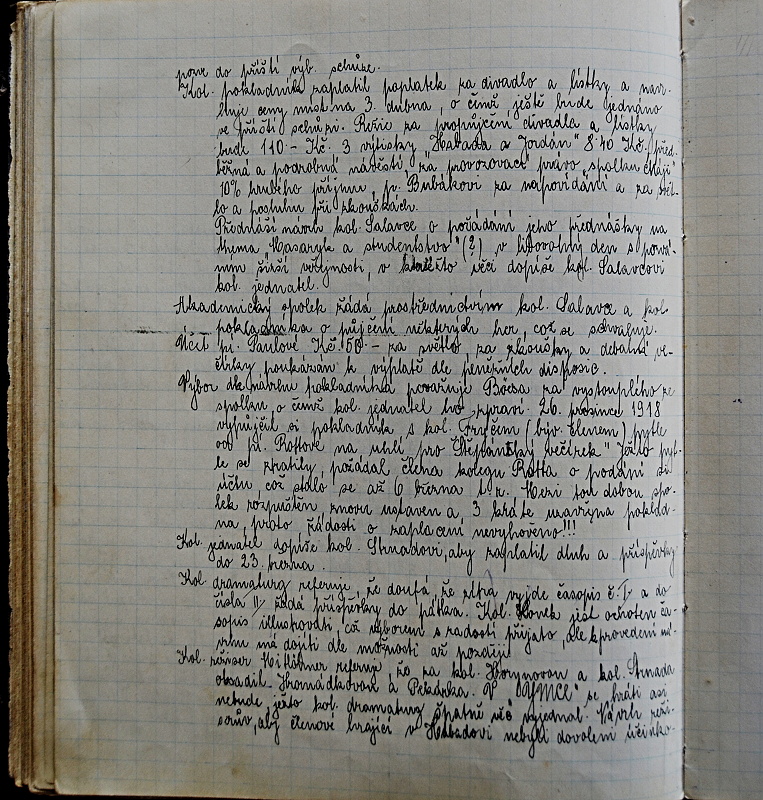 pozve do příští výb. schůze.
Kol. pokladník zaplatil poplatek za divadlo a lístky a nav-
rhuje ceny míst na 3. dubna, o čemž ještě bude jednáno
ve příští schůzi. Režie za propůjčení divadla a lístky
bude 110 - Kč. 3 výtisky "Habada a Jordán" 8·40 Kč, před-
běžná a podrobná návěstí, za provozovací právo "spolku Máj"
10% hrubého příjmu, p. Bubákovi za napovídání a za svět-
lo a posluhu při zkouškách.
Přednáší návrh kol. Salavce o pořádání jeho přednášky na
thema "Masaryk a studentstvo" (?) v libovolný den s pozvá-
ním širší veřejnosti, v kteréžto věci dopíše kol. Salavcovi
kol. jednatel.
Akademický spolek žádá prostřednictvím kol. Salavce a kol.
pokladníka o půjčení některých her, což se schvaluje.
Účet pí. Paulové Kč 50·- za světlo, za zkoušky a debatní ve-
čírky, poukázán k výplatě dle peněžních disposic.
Výbor dle návrhu pokladníka považuje Bočsa za vystouplého ze
spolku, o čemž kol. jednatel ho zpraví. 26. prosince 1918
vypůjčil si pokladník s kol. Fryčem (býv. členem) pytle
od pí. Rottové na uhlí pro "Štěpánský večírek". Ježto pyt-
le se ztratily, požádal člena kolegu Rotta o podání si
účtu což stalo se až 6 března t. r. Mezi tou dobou spo-
lek rozpuštěn znovu ustaven a 3 kráte uzavřena poklad-
na, proto žádosti o zaplacení nevyhověno!!!
Kol. jednatel dopíše kol. Strnadovi, aby zaplatil dluh a příspěvky
do 23. března.
Kol. dramaturg referuje, že doufá, že zítra vyjde časopis č. I. a do
čísla II. žádá příspěvky do pátku. Kol. Novek jest ochoten ča-
sopis illustrovati, což výborem s radostí přijato, ale k provedení ná-
vrhu má dojíti dle možnosti až později.
Kol. režiser Mittöhner referuje, že za kol. Horynovou a kol. Strnada
obsadil Hromádkovou a Pekárka. V "OYMCE" se hráti asi
nebude, ježto kol. dramaturg špatně věc vyjednal. Návrh reži-
sérův, aby členové hrající v Habadovi nebylo dovoleno účinko-